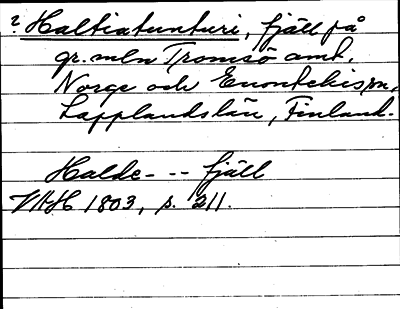 ? Haltiatunturi, fjäll på
gr. mln Tromsö amt,
Norge och Enontekis sn,
Lapplands län, Finland.
Halde- - - fjäll
VAH 1803, s. 211.